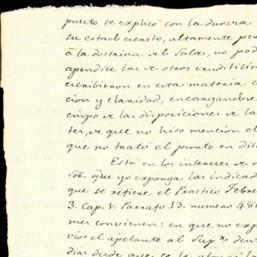 puerto se explicó con la dureza
su citado escrito, altamente per
á la doctrina de Salas, no pod
apendice las de otros erudi
escribieron en esta materia c
cion y claridad, encargandore
de las disposiciones de la
ter, de que no hiso mencion el
que no trató el punto en di
Está en los intereses de m
que yo exponga las indicad
que se refiere el Practico Febre
3. Cap. 1. Parrafo 13. numero 48
mer convienen: en que no exp
vios el apelante al Sup.
dias desde que se la